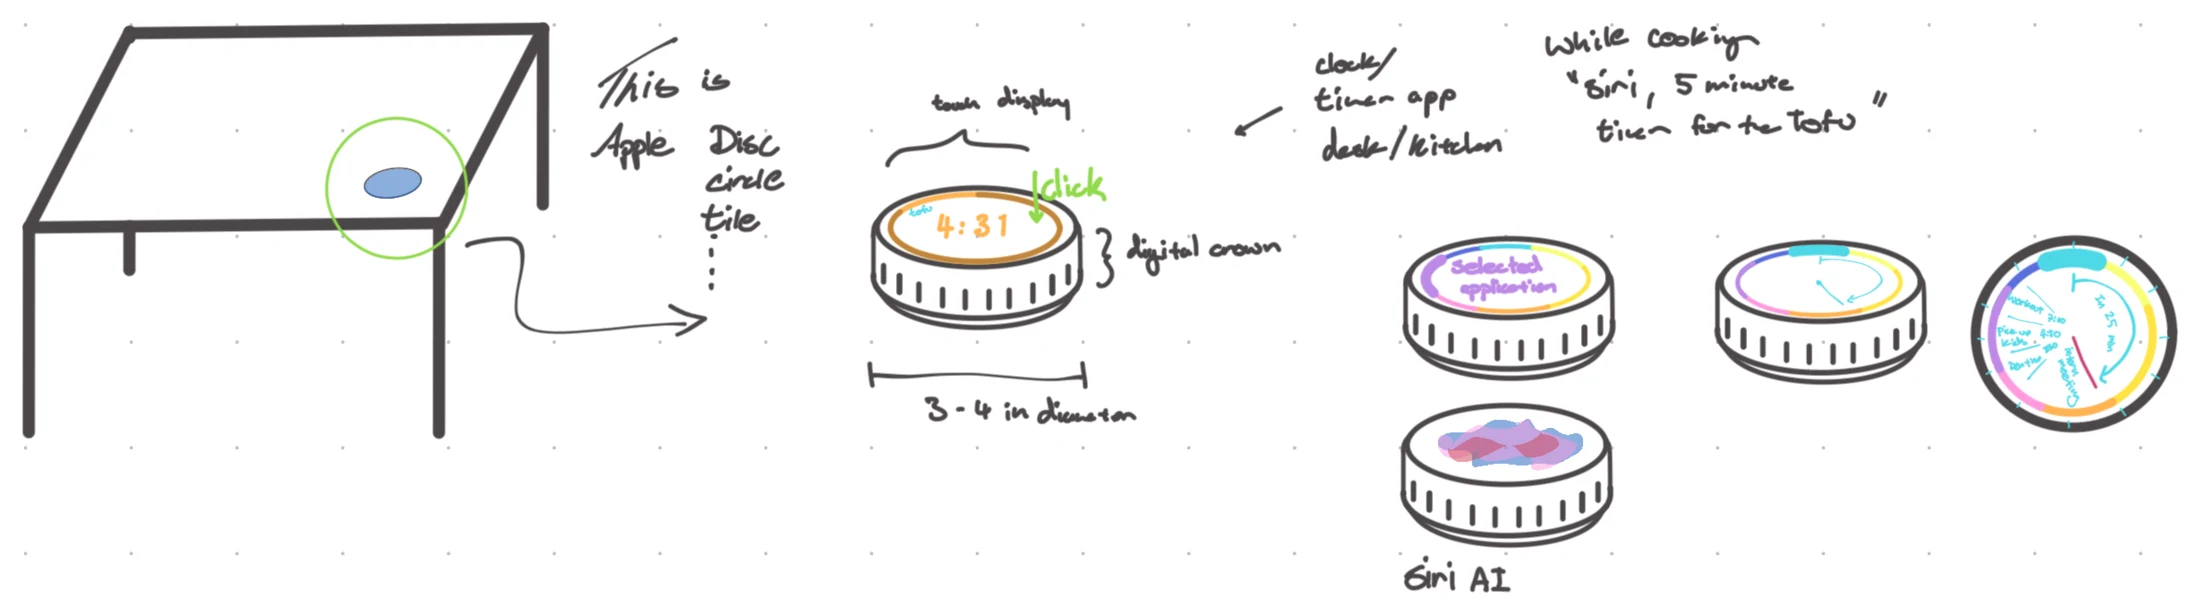 This is
Apple Disc
circle
tile
touch display
click
tofu
4:31
digital crown
3-4 in diameter
clock/
timer app
desk/kitchen
While cooking
"Siri, 5 minute
timer for the Tofu"
Selected
application
Siri AI
In 25 min
workout 7:00
Pick up 4:30
kids
Dentist
intern
meeting